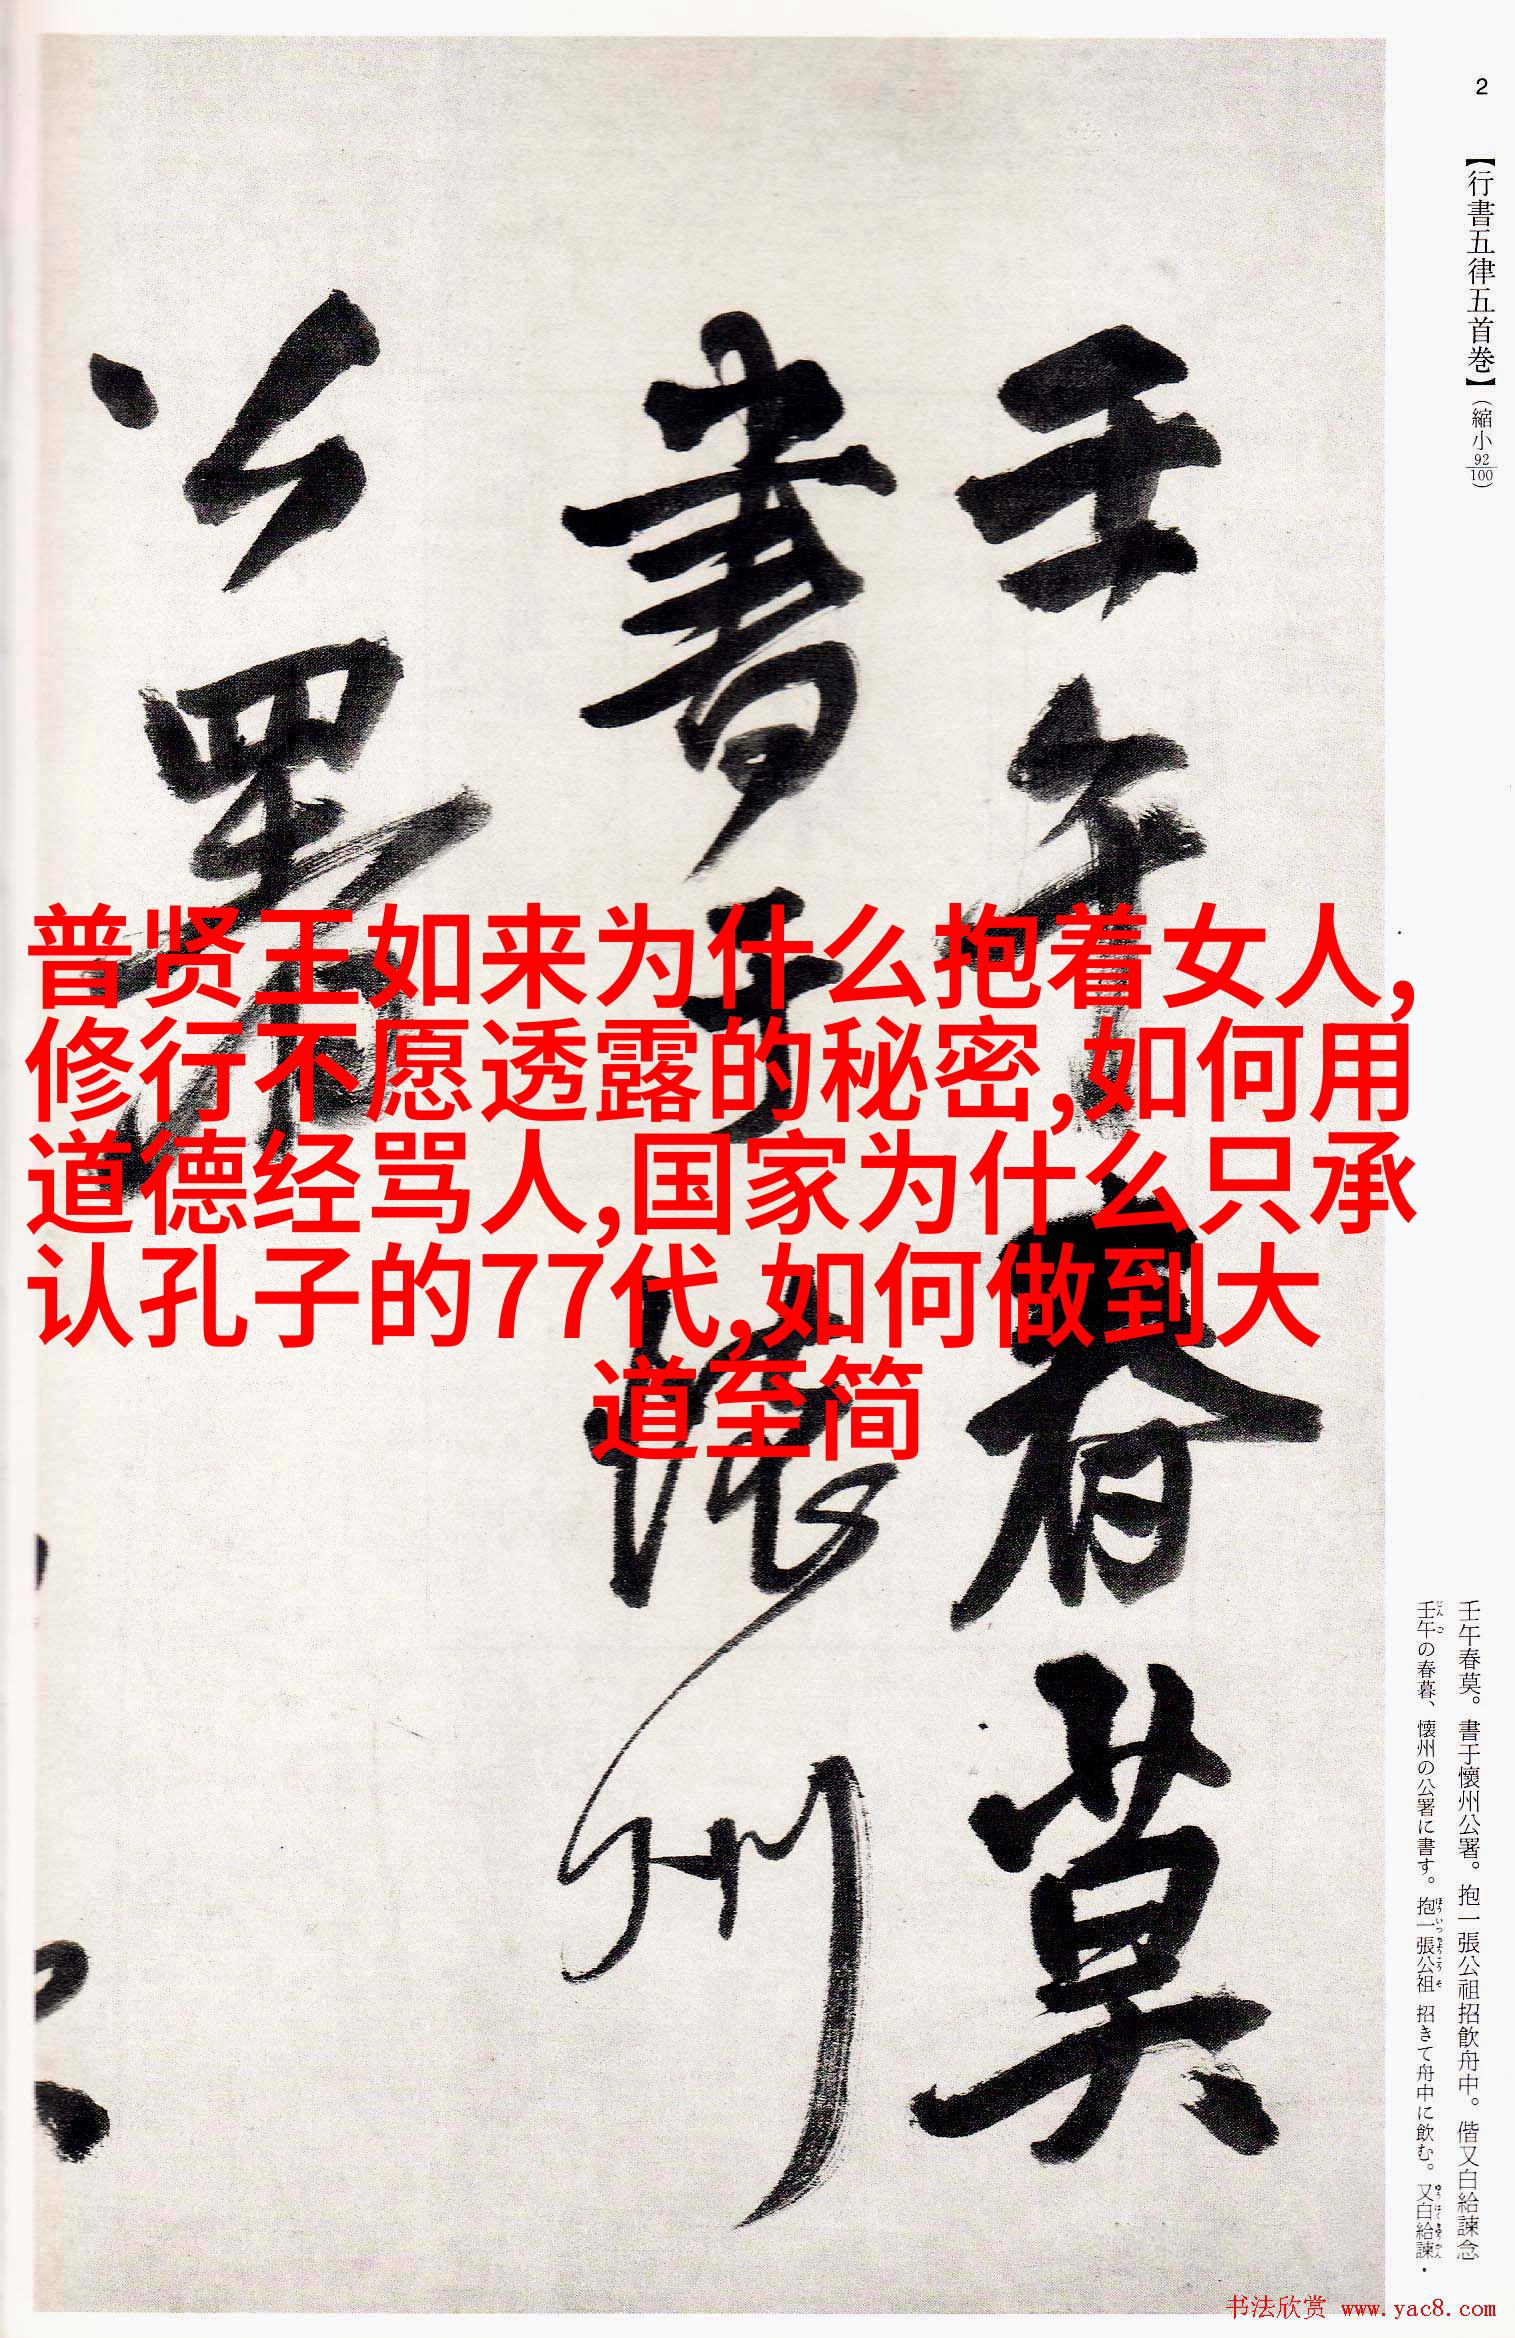 2
【行書五律五首巻】(縮小92/100)
壬午春莫
書于懷州
公署
普贤王如来为什么抱着女人,
修行不愿透露的秘密,如何用
道德经骂人,国家为什么只承
认孔子的77代,如何做到大
道至简
壬午春莫。書于懷州公署。抱一張公祖招飲舟中。偕又白給諫念
壬午の春暮、懷州の公署に書す。抱一張公祖 招きて舟中に飲む。又白給諫・
书法欣赏 www.yac8.com